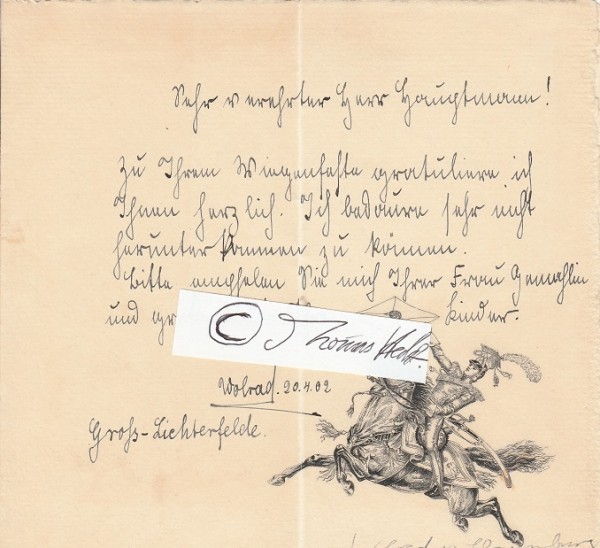 Sehr verehrter Herr Hauptmann!
Zu Ihrem Wiegenfeste gratuliere ich
Ihnen herzlich. Ich bedaure sehr nicht
herunterkommen zu können.
Bitte empfelen Sie mich Ihrer Frau Gemahlin
und Kinder.
© Thomas
Wolrad. 20.4.02
Gross-Lichterfelde.